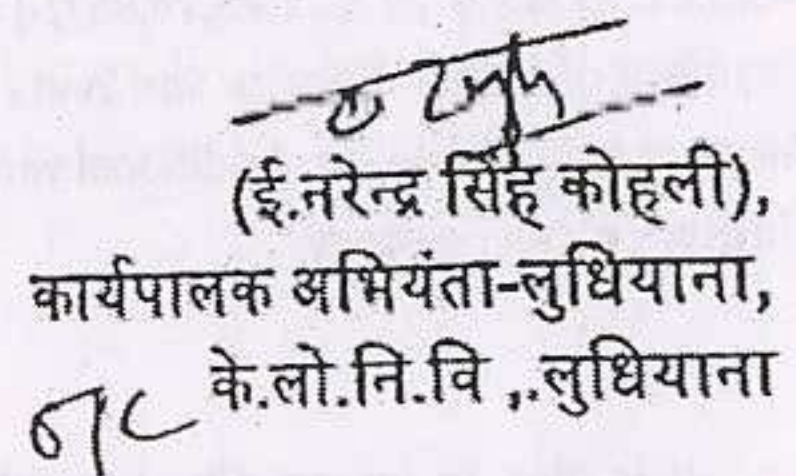 (ई.नरेन्द्र सिंह कोहली),
कार्यपालक अभियंता-लुधियाना,
के.लो.नि.वि ,.लुधियाना